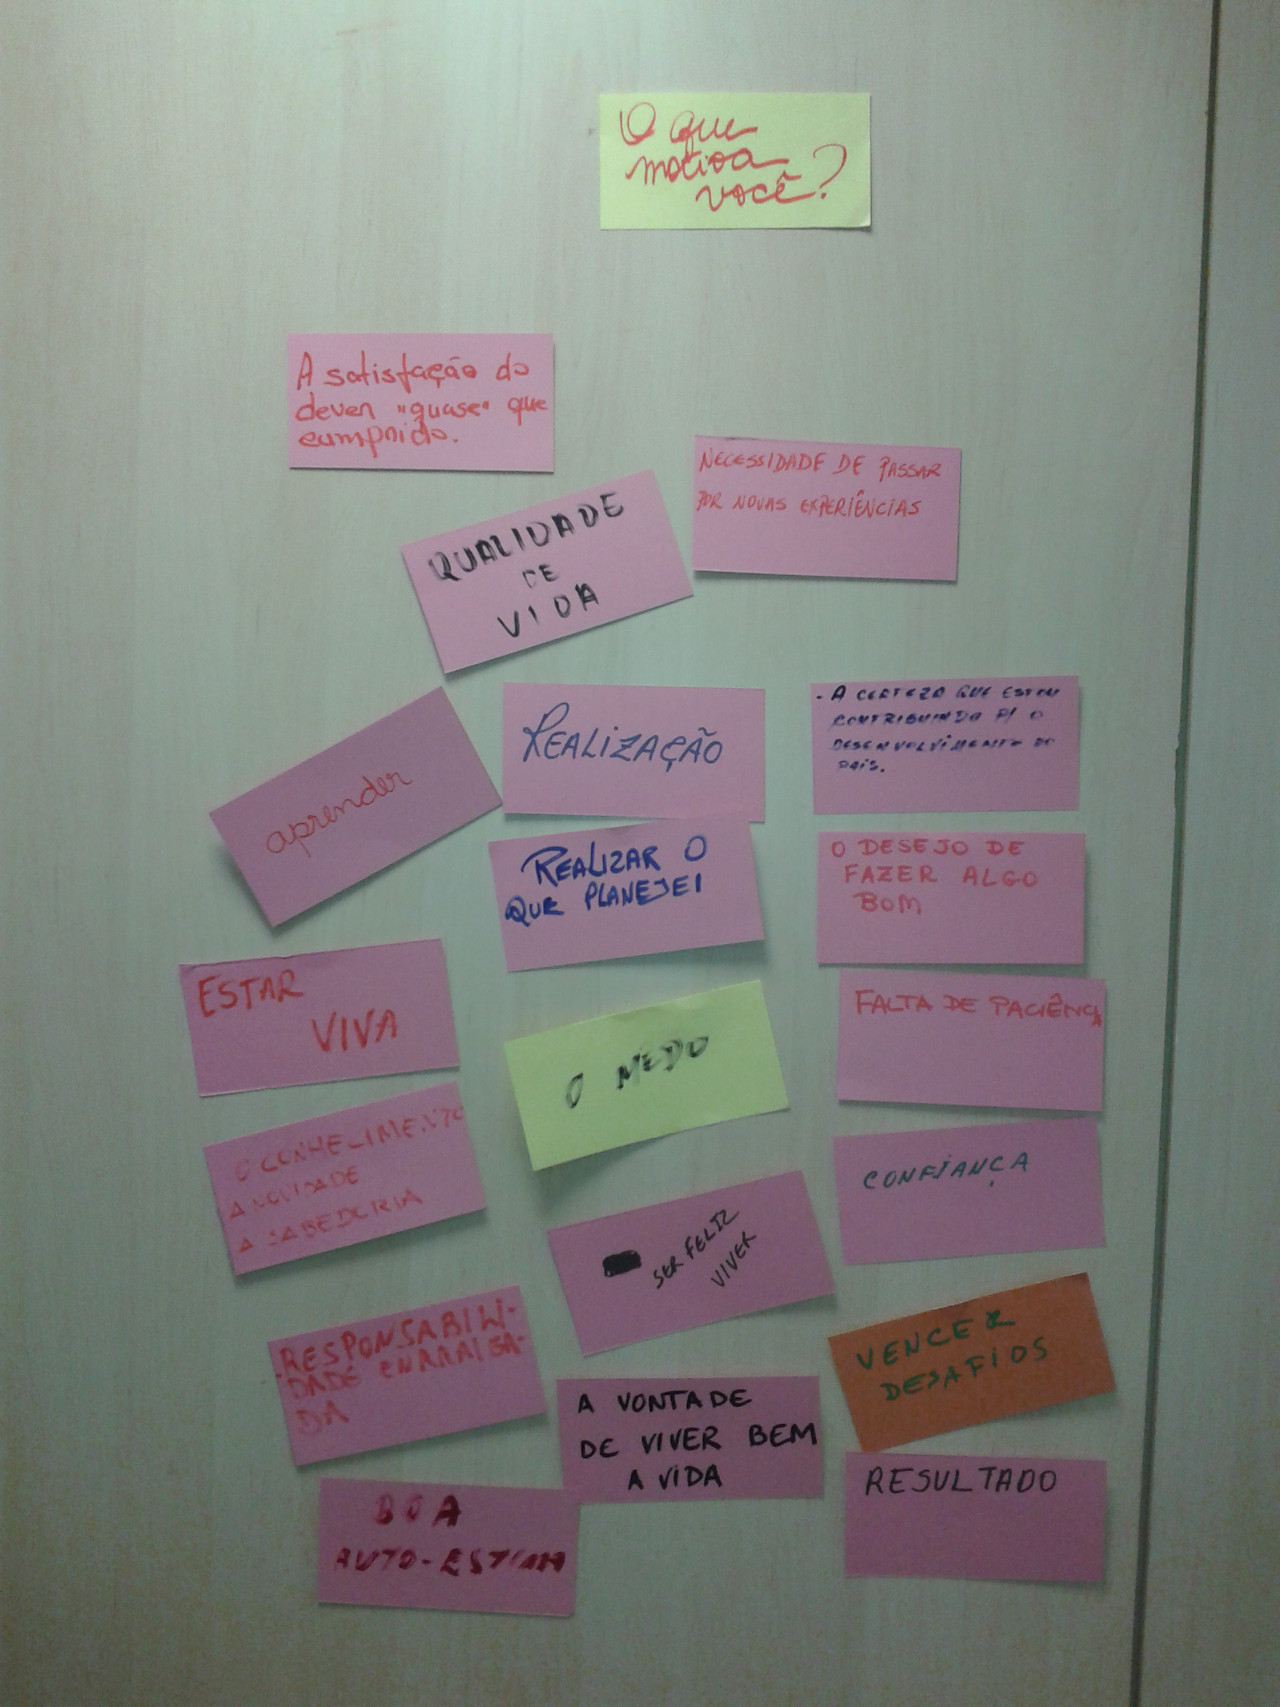 O que
motiva
você?
A satisfação do
dever "quase" que
cumprido.
NECESSIDADE DE PASSAR
POR NOVAS EXPERIÊNCIAS
QUALIDADE
DE
VIDA
aprender
REALIZAÇÃO
- A CERTEZA QUE ESTOU
CONTRIBUINDO P/ O
DESENVOLVIMENTO DO
PAÍS.
REALIZAR O
QUE PLANEJEI
O DESEJO DE
FAZER ALGO
BOM
ESTAR
VIVA
O MEDO
FALTA DE PACIÊNCIA
O CONHECIMENTO
A NOVIDADE
A SABEDORIA
SER FELIZ
VIVER
CONFIANÇA
RESPONSABILI-
DADE ENRAIZA-
DA
VENCER
DESAFIOS
A VONTADE
DE VIVER BEM
A VIDA
RESULTADO
BOA
AUTO-ESTIMA